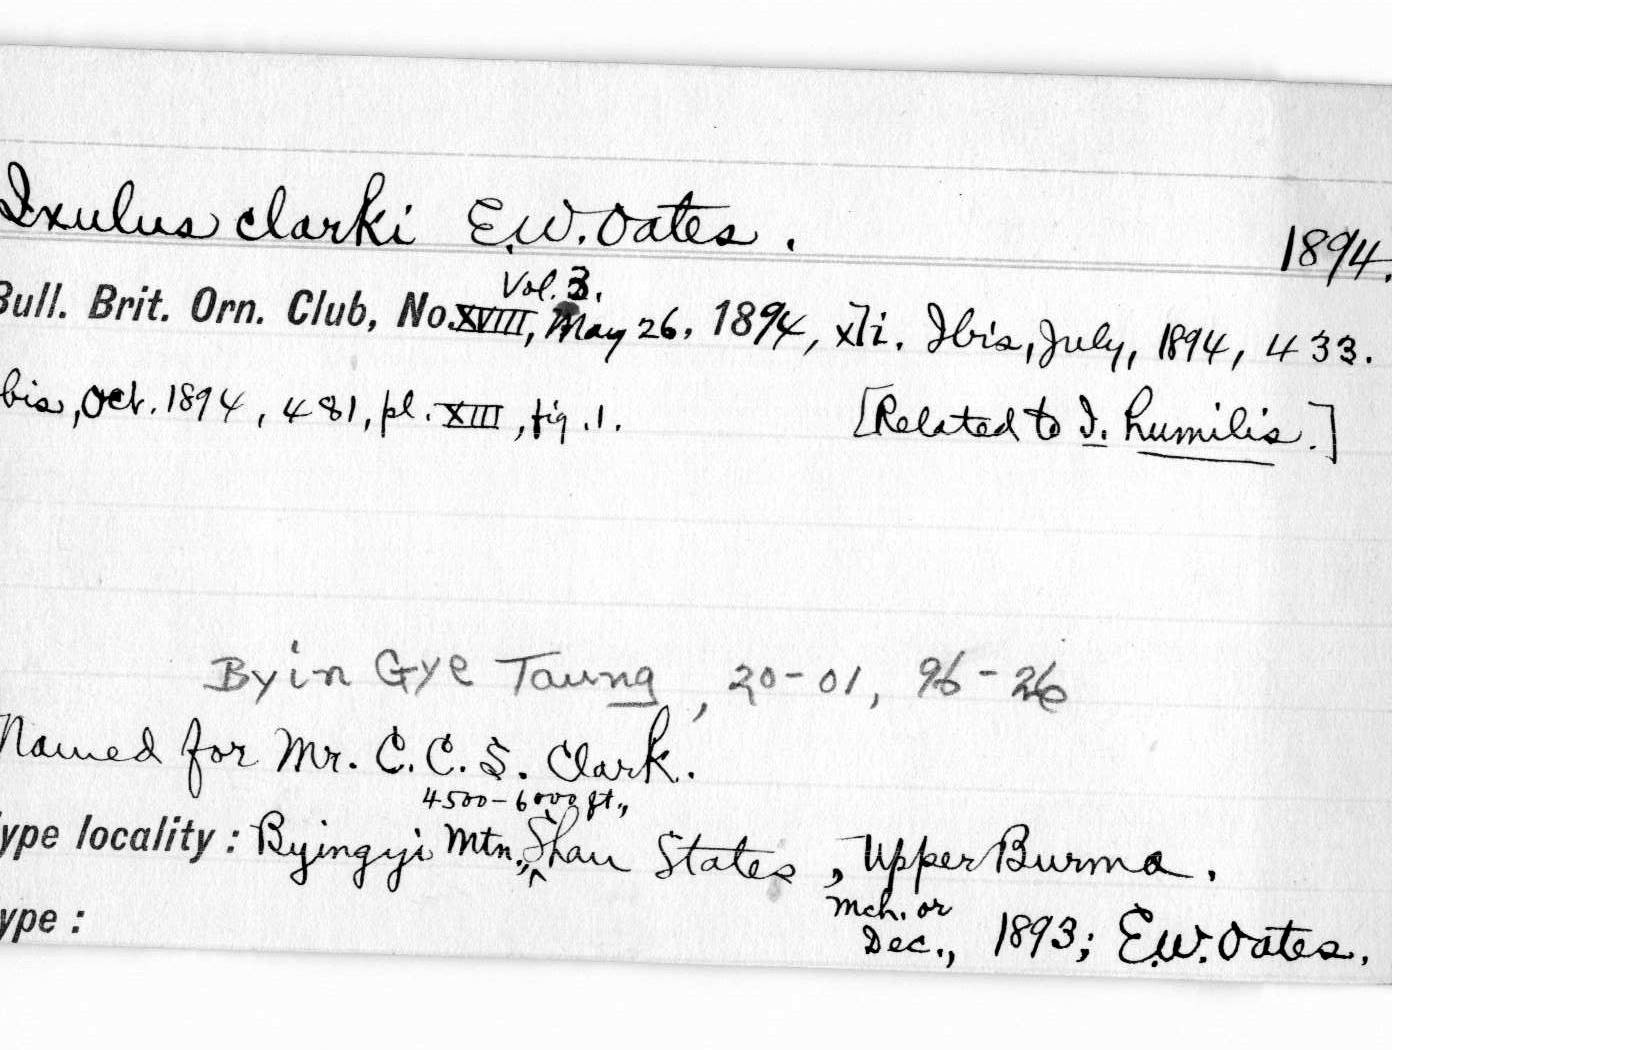 Ixulus clarki E.W. Oates. 1894.
Vol. 3.
Bull. Brit. Orn. Club, No. XVIII, May 26, 1894, xli. Ibis, July, 1894, 433.
bis, Oct. 1894, 481, pl. XIII, fig. 1. [Related to I. humilis.]
Byin Gye Taung, 20-01, 96-26
Named for Mr. C.C.S. Clark.
4500-6000 ft.,
ype locality: Byingyi Mtn., Shan States, Upper Burma.
Mch. or
ype: Dec., 1893; E.W. Oates.